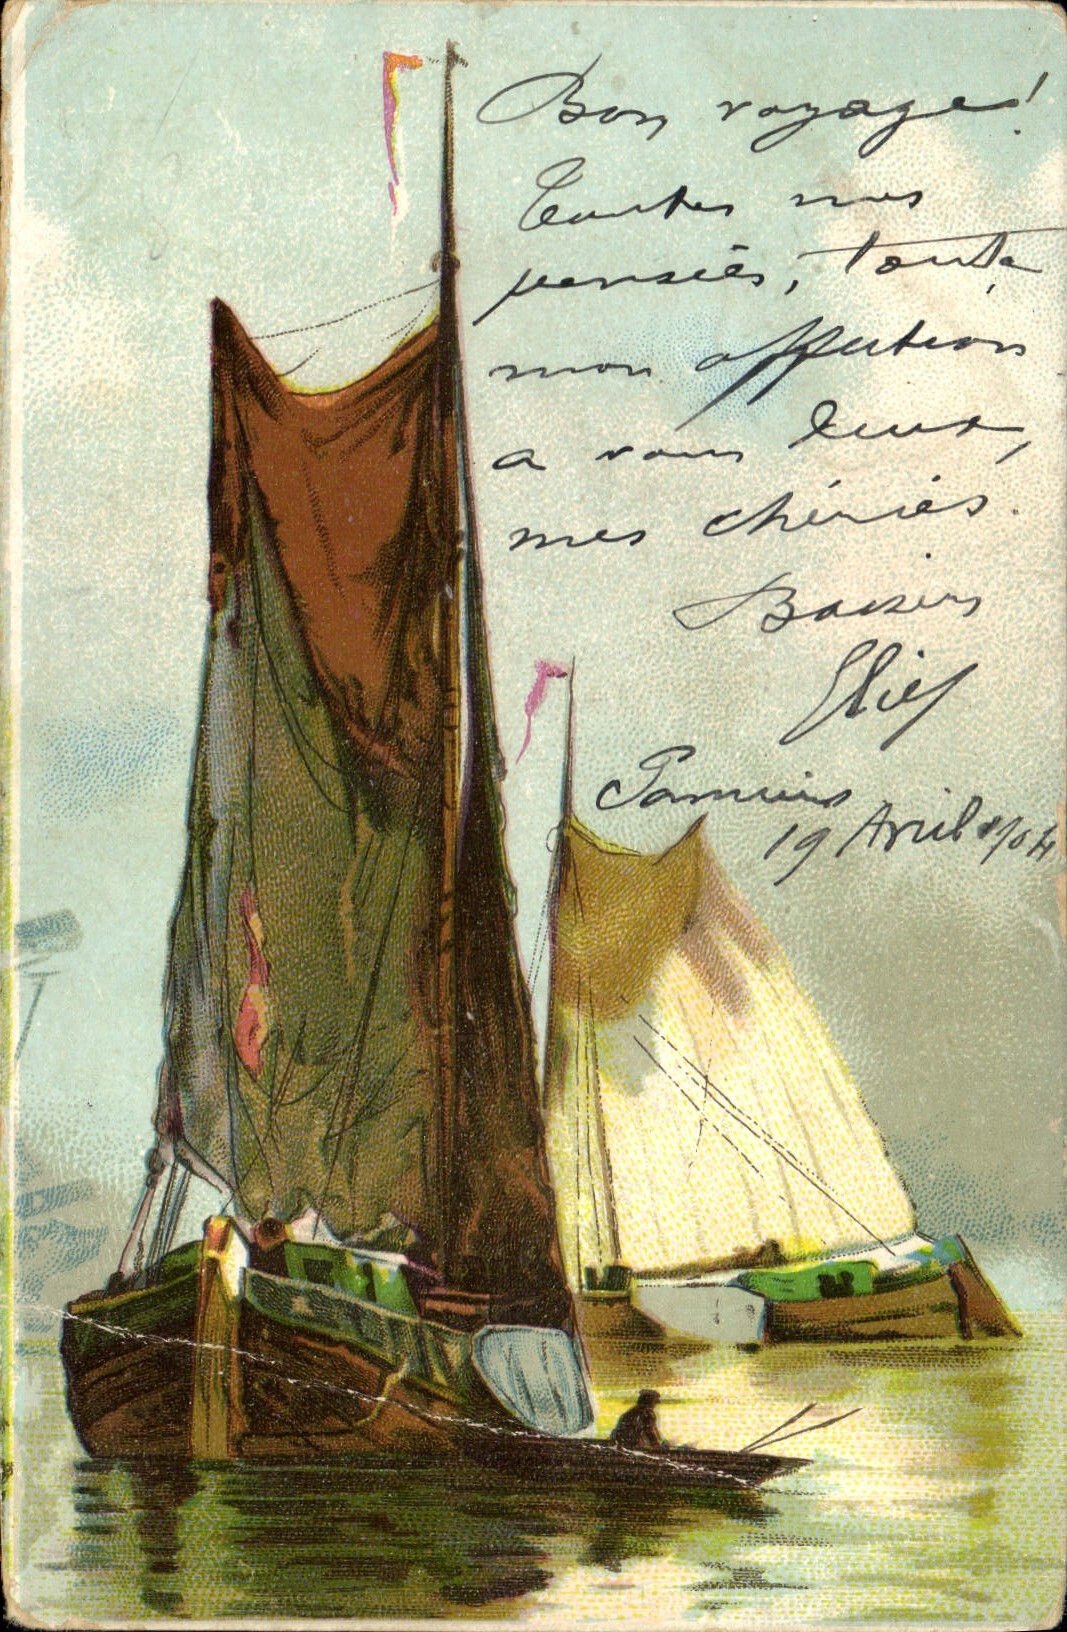 Bon voyage!
Toutes mes
pensées, toute
mon affection
a vous deux,
mes chéries.
Baisers
Pamiers
19 Avril 1904